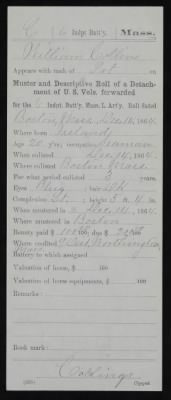 6 Indpt Batt'y, Mass.
William Collins
Appears with rank of
Muster and Descriptive Roll of a Detachment of U. S. Vols. forwarded
for the 6 Indpt. Batt'y, Mass. L. Art'y. Roll dated
Boston, Mass. Dec. 14, 1864.
Where born Ireland
Age 20 y'rs; occupation Seaman
When enlisted Dec. 14, 1864.
Where enlisted Boston, Mass.
For what period enlisted 3 years.
Eyes Blue; hair
Complexion; height 5 ft. in.
When mustered in Dec. 14, 1864.
Where mustered in Boston
Bounty paid $ 100; due $ 100
Where credited West Worthington
Mass
Battery to which assigned
Valuation of horse, $ 100
Valuation of horse equipments, $ 100
Remarks:
Book mark:
Collings
Copyist